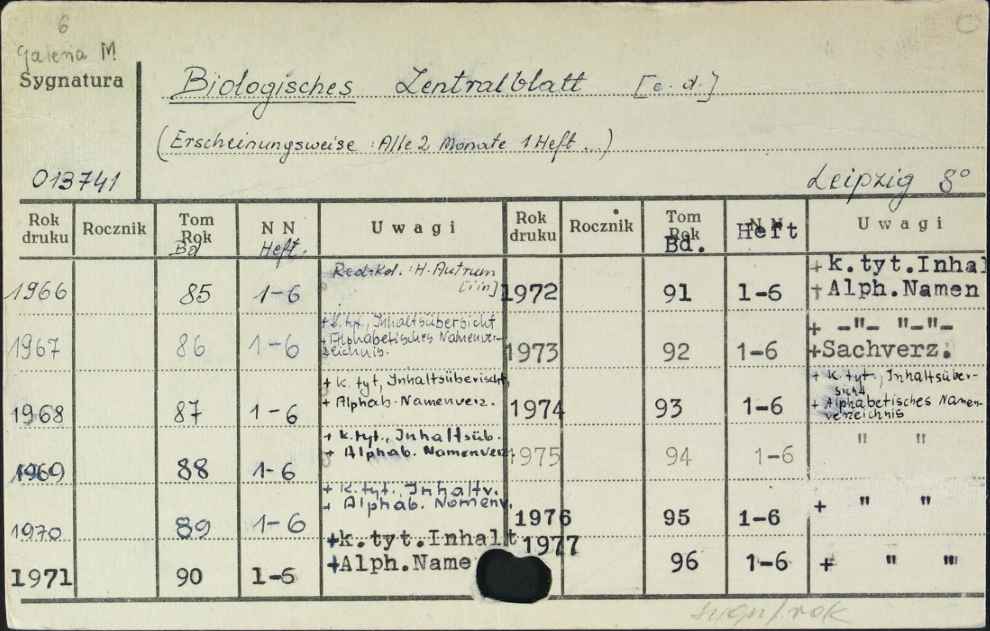 6
Galeria M
Sygnatura
Biologisches Zentralblatt [e.d.]
(Erscheinungsweise : Alle 2 Monate 1 Heft...)
013741
Leipzig 8°
Rok druku Rocznik Tom Rok Bd N N Heft. Uwagi Rok druku Rocznik Tom Rok Bd. N N Heft Uwagi
1966 85 1-6 Red. Kol. : H. Autrum [i in] 1972 91 1-6 + k.tyt.Inhal + Alph.Namen
1967 86 1-6 + k. tyt., Inhaltsübersicht + Alphabetisches Namenverzeichnis. 1973 92 1-6 + -"- "-"- +Sachverz.
1968 87 1-6 + k. tyt, Inhaltsüberischt, + Alphab. Namenverz. 1974 93 1-6 + k. tyt., Inhaltsübersicht + Alphabetisches Namenverzeichnis
1969 88 1-6 + k. tyt., Inhaltsüb. + Alphab. Namenverz 1975 94 1-6 " "
1970 89 1-6 + k. tyt., Inhaltv. + Alphab. Nomenv. 1976 95 1-6 + " "
1971 90 1-6 +k.tyt.Inhalt +Alph.Name 1977 96 1-6 + " "